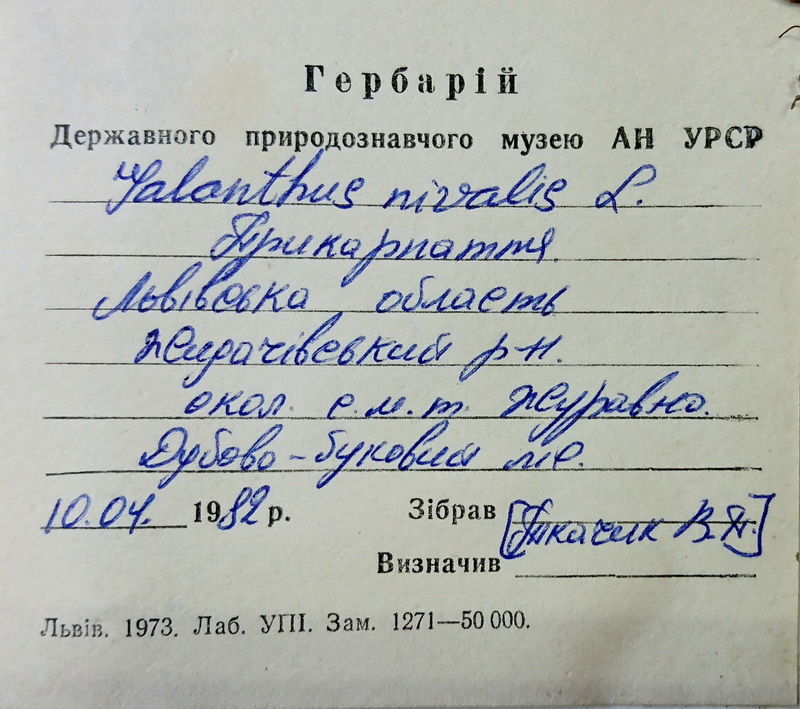 Гербарій
Державного природознавчого музею АН УРСР
Galanthus nivalis L.
Прикарпаття.
Львівська область
Жидачівський р-н.
окол. с.м.т. Журавно.
Дубово-буковий ліс.
10.04. 1982 р. Зібрав [Ткачик В.П.]
Визначив
Львів. 1973. Лаб. УПІ. Зам. 1271—50 000.